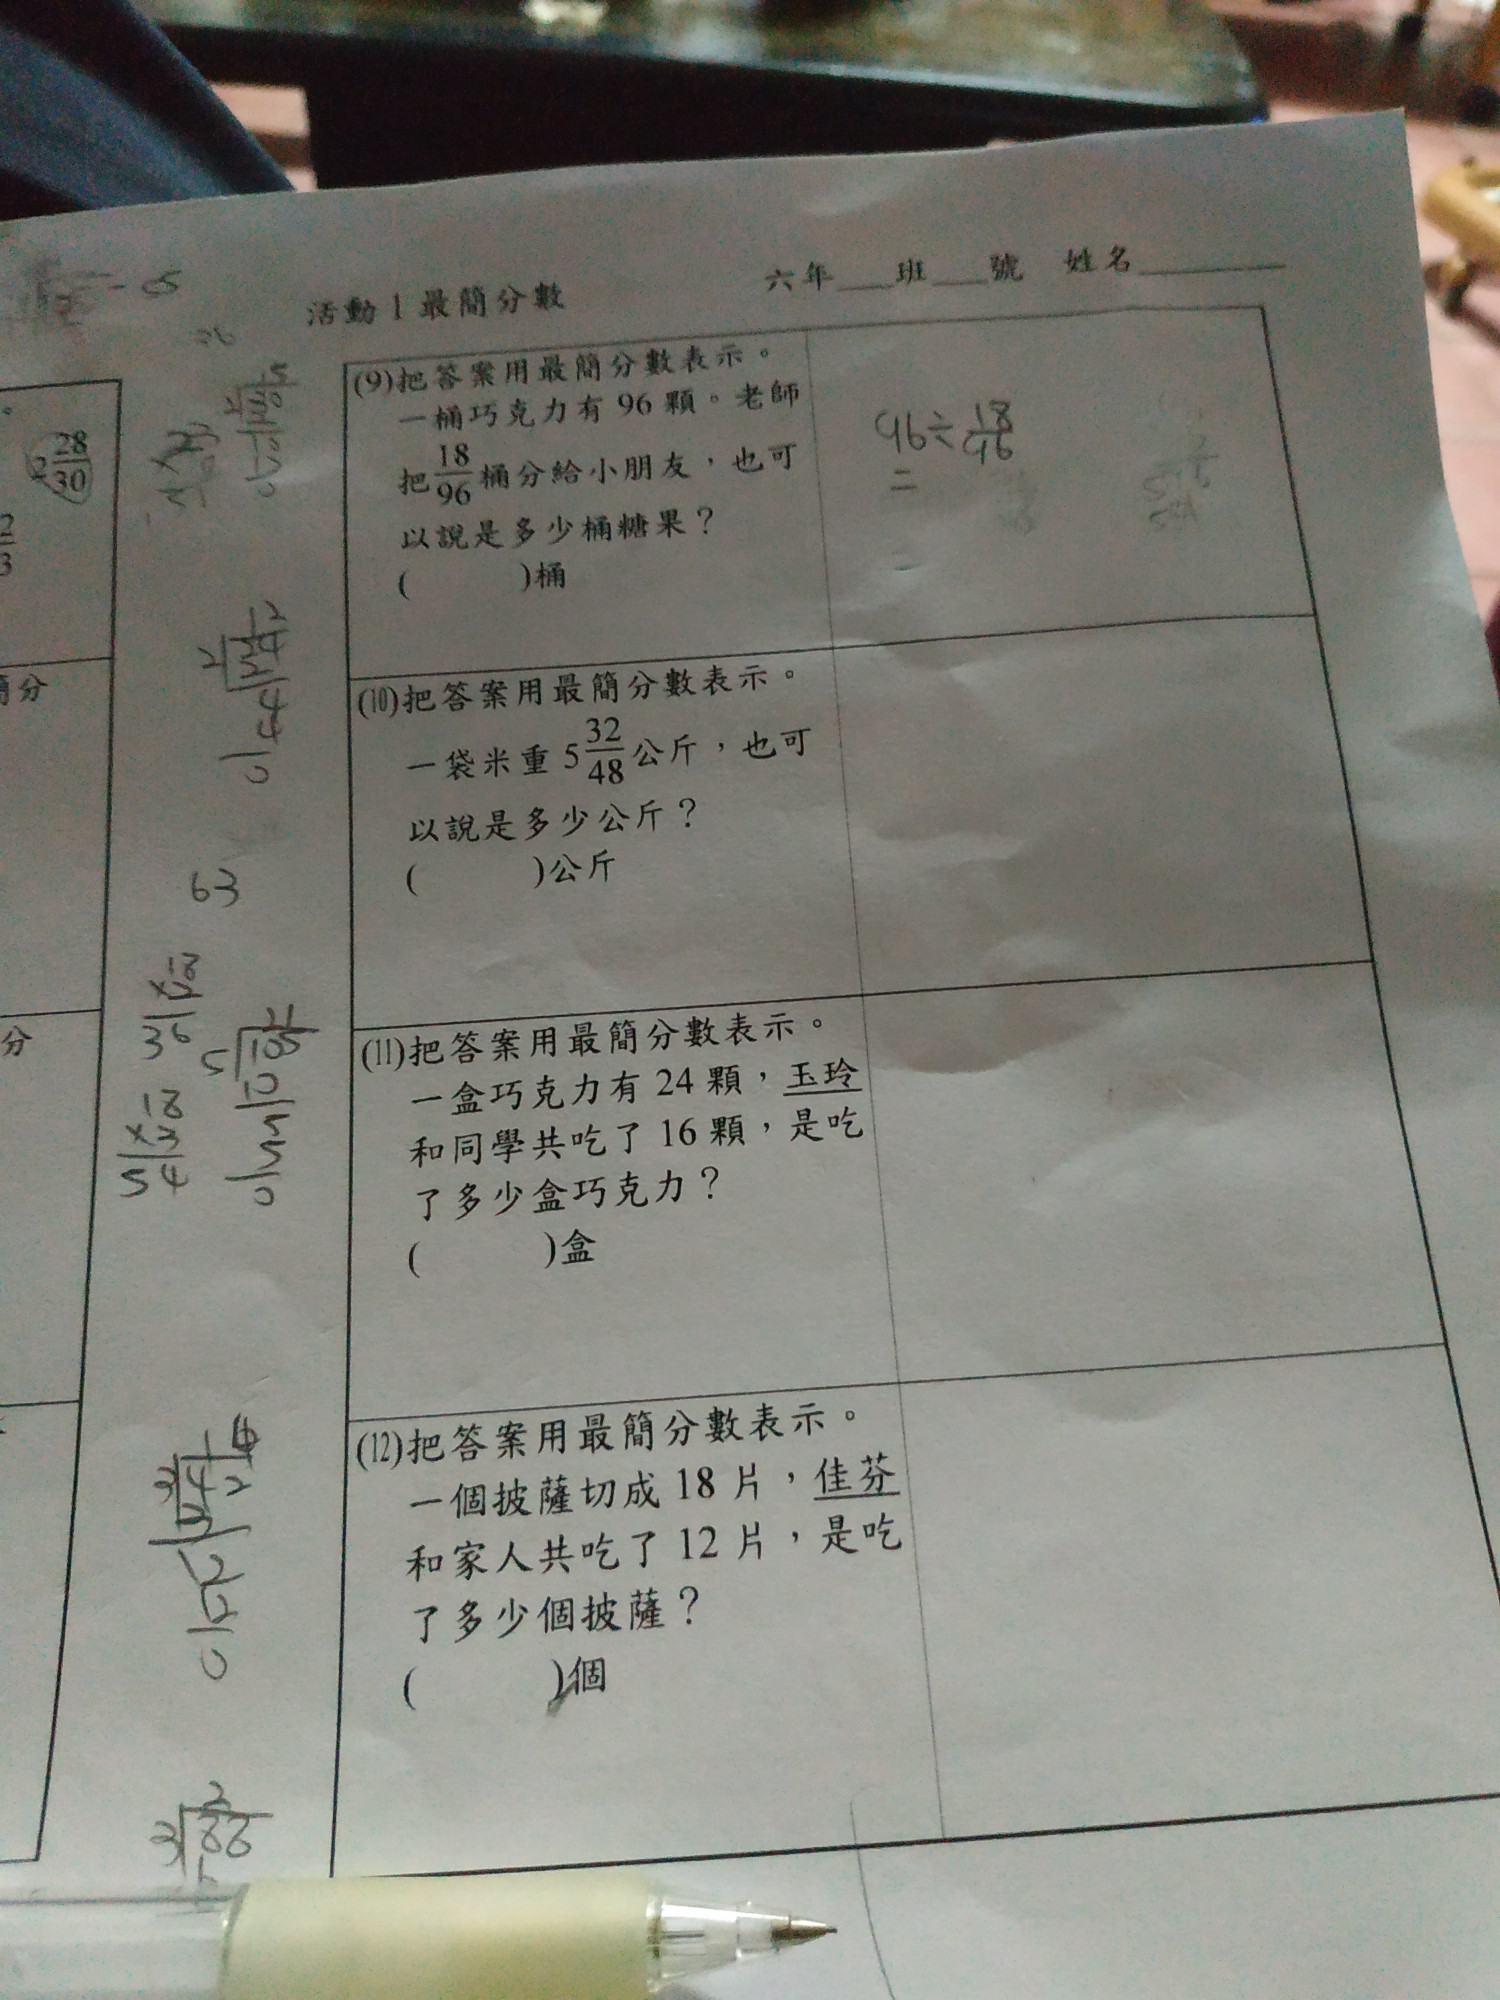 活動1 最簡分數
六年___班___號 姓名________
(9)把答案用最簡分數表示。
一桶巧克力有 96 顆。老師
把18/96桶分給小朋友，也可
以說是多少桶糖果？
( )桶
96÷18/96
=
(10)把答案用最簡分數表示。
一袋米重 5 32/48公斤，也可
以說是多少公斤？
( )公斤
(11)把答案用最簡分數表示。
一盒巧克力有 24 顆，玉玲
和同學共吃了 16 顆，是吃
了多少盒巧克力？
( )盒
(12)把答案用最簡分數表示。
一個披薩切成 18 片，佳芬
和家人共吃了 12 片，是吃
了多少個披薩？
( )個
2 28/30
2/3
分
分
12
2 24
2
4
4
0
63
18
×2
36
18
×3
54
21
5 105
10
5
5
0
14
3 42
3
12
12
0